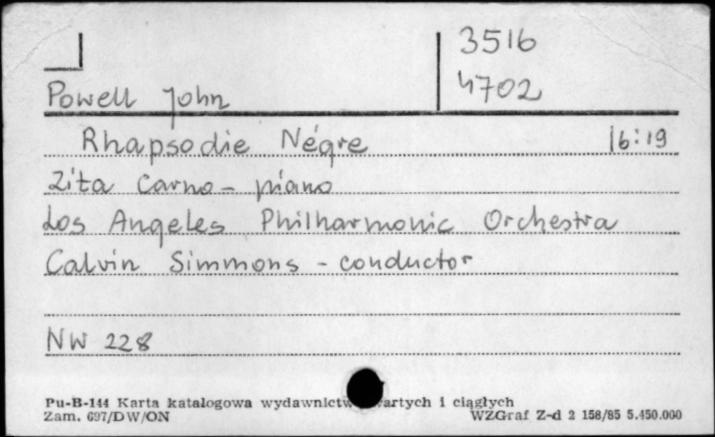 3516
4702
Powell John
Rhapsodie Négre 16:19
Zita Carno - piano
Los Angeles Philharmonic Orchestra
Calvin Simmons - conductor
NW 228
Pu-B-144 Karta katalogowa wydawnictw ciągłych i
Zam. 697/DW/ON WZGraf Z-d 2 158/85 5.450.000